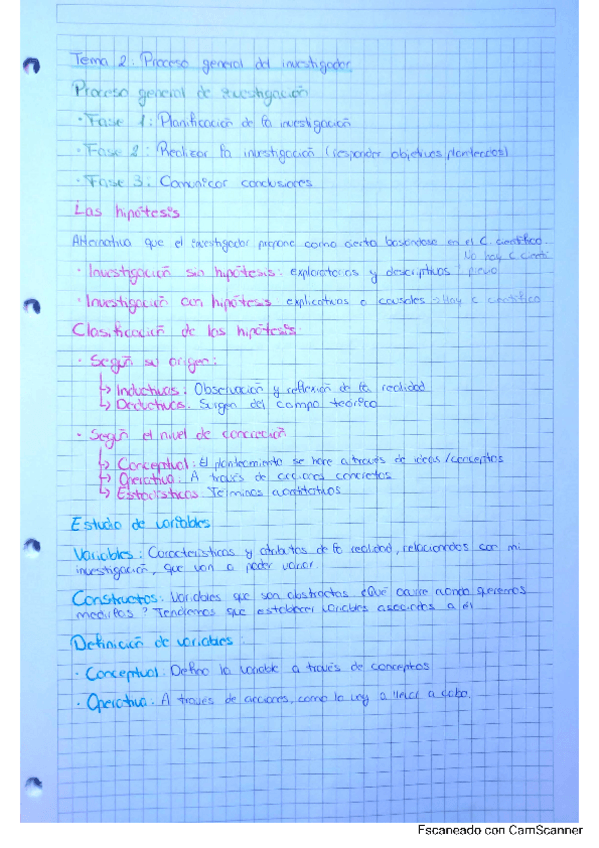 Tema 2: Proceso general del investigador
Proceso general de investigación
· Fase 1: Planificación de la investigación
· Fase 2: Realizar la investigación (responder objetivos planteados)
· Fase 3: Comunicar conclusiones
Las hipótesis
Alternativa que el investigador propone como cierta basándose en el C. científico.
· Investigación sin hipótesis: exploratorias y descriptivos: No hay C cientí. previo
· Investigación con hipótesis explicativos o causales: Hay c científico
Clasificación de las hipótesis:
· Según su origen:
↳ Inductivas: Observación y reflexión de la realidad
↳ Deductivas. Surgen del campo teórico
· Según el nivel de concreción
↳ Conceptual: El planteamiento se hace a través de ideas/conceptos
↳ Operativa: A través de acciones concretas
↳ Estadísticas Términos cuantitativos
Estudio de variables
Variables: Características y atributos de la realidad, relacionados con mi
investigación, que van a poder variar.
Constructos: Variables que son abstractas ¿Qué ocurre cuando queremos
medirlas? Tendremos que establecer variables asociadas a él
Definición de variables:
· Conceptual: Defino la variable a través de conceptos
· Operativa: A través de acciones, como la voy a llevar a cabo.
Escaneado con CamScanner